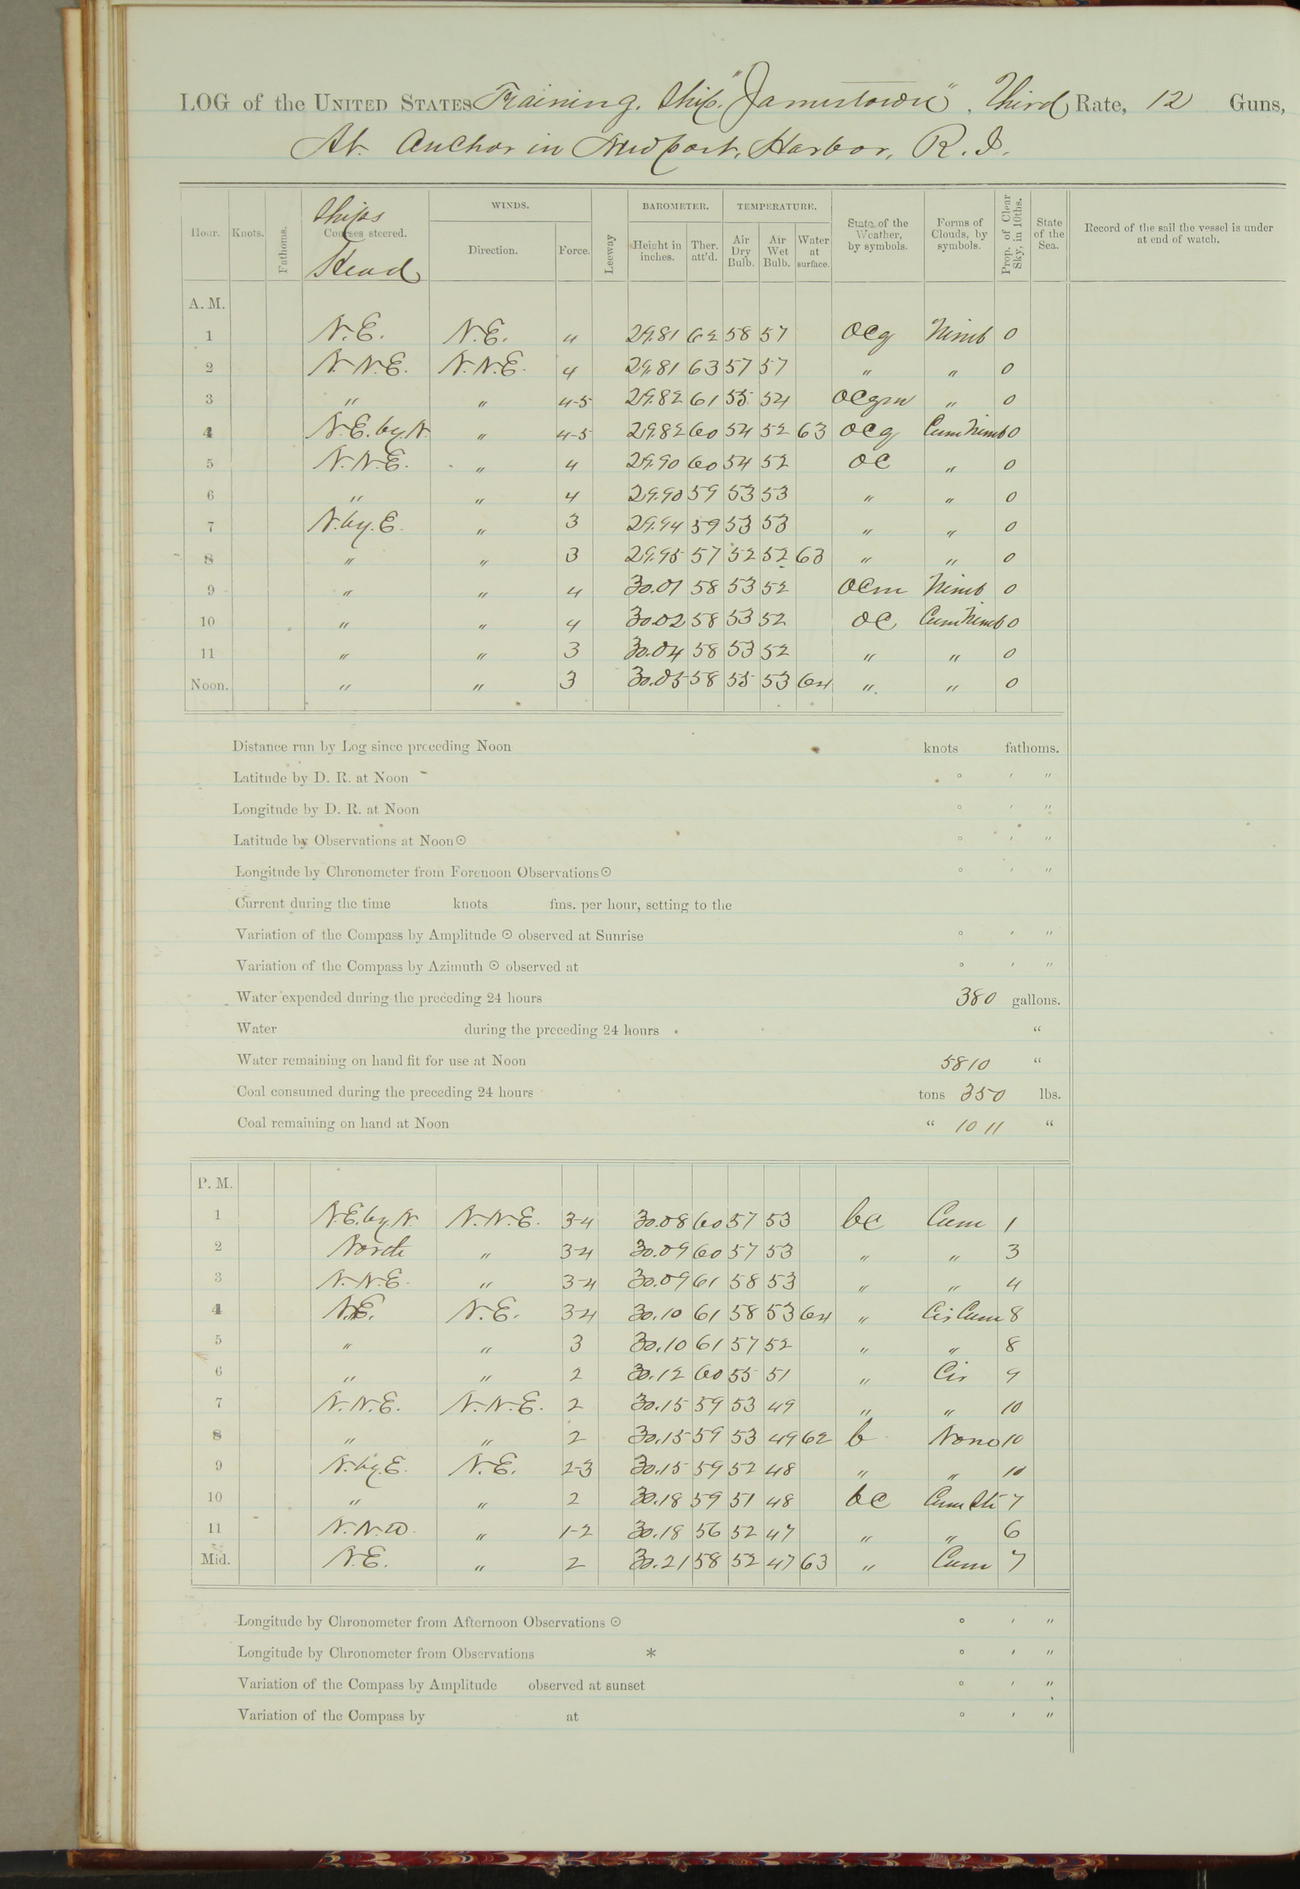 LOG of the UNITED STATES Training Ship "Jamestown", Third Rate, 12 Guns,
At Anchor in Newport, Harbor, R. I.
Hour. Knots. Fathoms. Ships Courses steered. Head WINDS. Direction. Force. Leeway BAROMETER. Height in inches. Ther. att'd. TEMPERATURE. Air Dry Bulb. Air Wet Bulb. Water at surface. State of the Weather, by symbols. Forms of Clouds, by symbols. Prop. of Clear Sky, in 10ths. State of the Sea. Record of the sail the vessel is under at end of watch.
A. M.
1 N.E. N.E. 4 29.81 62 58 57 ocg Nimb 0
2 N.N.E. N.N.E. 4 29.81 63 57 57 " " 0
3 " " 4-5 29.82 61 55 54 ocgm " 0
4 N.E. by N. " 4-5 29.82 60 54 52 63 ocg Cum Nimb 0
5 N.N.E. " 4 29.90 60 54 52 oc " 0
6 " " 4 29.90 59 53 53 " " 0
7 N. by E. " 3 29.94 59 53 53 " " 0
8 " " 3 29.95 57 52 52 63 " " 0
9 " " 4 30.01 58 53 52 ocm Nimb 0
10 " " 4 30.02 58 53 52 oc Cum Nimb 0
11 " " 3 30.04 58 53 52 " " 0
Noon. " " 3 30.05 58 55 53 64 " " 0
Distance run by Log since preceding Noon knots fathoms.
Latitude by D. R. at Noon ° ' "
Longitude by D. R. at Noon ° ' "
Latitude by Observations at Noon ☉ ° ' "
Longitude by Chronometer from Forenoon Observations ☉ ° ' "
Current during the time knots fms. per hour, setting to the
Variation of the Compass by Amplitude ☉ observed at Sunrise ° ' "
Variation of the Compass by Azimuth ☉ observed at ° ' "
Water expended during the preceding 24 hours 380 gallons.
Water during the preceding 24 hours "
Water remaining on hand fit for use at Noon 5810 "
Coal consumed during the preceding 24 hours tons 350 lbs.
Coal remaining on hand at Noon " 1011 "
P. M.
1 N.E. by N. N.N.E. 3-4 30.08 60 57 53 bc Cum 1
2 North " 3-4 30.09 60 57 53 " " 3
3 N.N.E. " 3-4 30.09 61 58 53 " " 4
4 N.E. N.E. 3-4 30.10 61 58 53 64 " Cir Cum 8
5 " " 3 30.10 61 57 52 " " 8
6 " " 2 30.12 60 55 51 " Cir 9
7 N.N.E. N.N.E. 2 30.15 59 53 49 " " 10
8 " " 2 30.15 59 53 49 62 b None 10
9 N. by E. N.E. 2-3 30.15 59 52 48 " " 10
10 " " 2 30.18 59 51 48 bc Cum Str 7
11 N.N.W. " 1-2 30.18 56 52 47 " " 6
Mid. N.E. " 2 30.21 58 52 47 63 " Cum 7
Longitude by Chronometer from Afternoon Observations ☉ ° ' "
Longitude by Chronometer from Observations * ° ' "
Variation of the Compass by Amplitude observed at sunset ° ' "
Variation of the Compass by at ° ' "